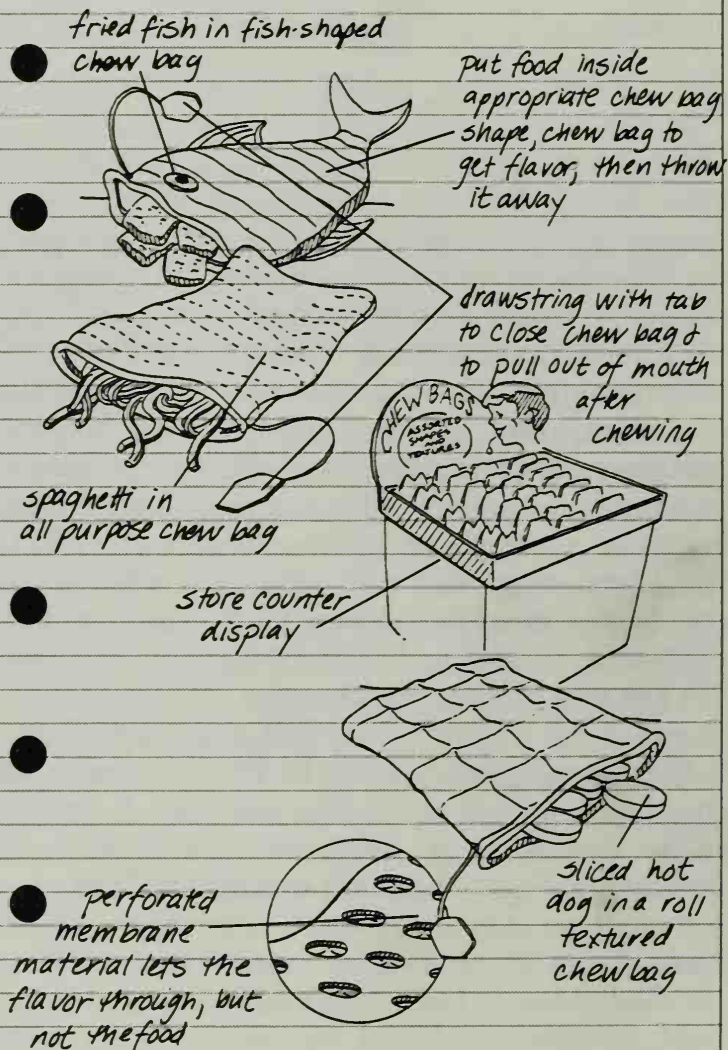 fried fish in fish-shaped
chew bag
put food inside
appropriate chew bag
shape, chew bag to
get flavor, then throw
it away
drawstring with tab
to close chew bag &
to pull out of mouth
after
chewing
CHEW BAGS
ASSORTED
SHAPES
AND
TEXTURES
spaghetti in
all purpose chew bag
store counter
display
sliced hot
dog in a roll
textured
chew bag
perforated
membrane
material lets the
flavor through, but
not the food